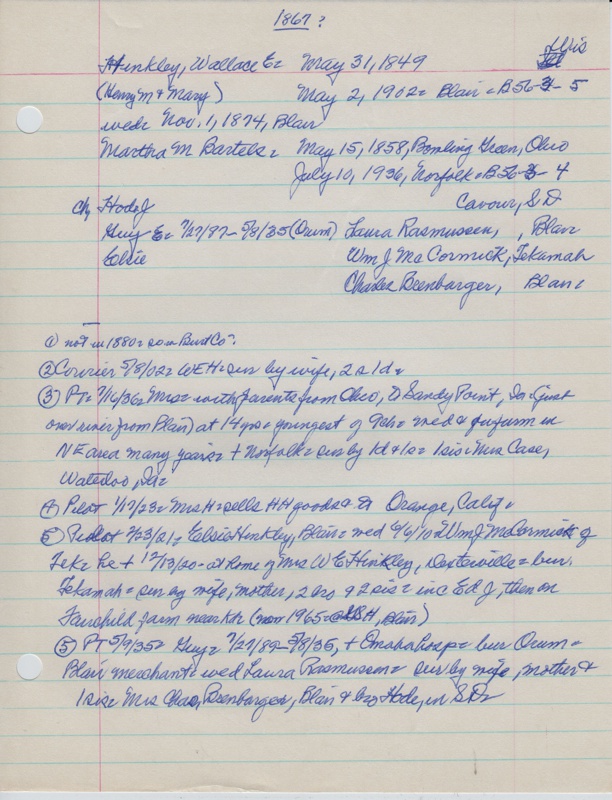 1867?
Wis
Hinkley, Wallace E= May 31, 1849
(Henry M & Mary) May 2, 1902= Blair = B56-3-5
wed= Nov. 1, 1874, Blair
Martha M Bartels= May 15, 1858, Bowling Green, Ohio
July 10, 1936, Norfolk = B56-3-4
Cavour, SD
Ch, Hode J
Guy E= 7/27/87- 5/8/35 (Orum) Laura Rasmussen, , Blair
Elsie Wm J McCormick, Tekamah
Charles Beenbarger, Blair=
① not in 1880= Burt Co-?
② Courier 5/8/02= WEH= sur by wife, 2 s 1 d=
③ PT= 7/16/36= Mrs= with parents from Ohio, to Sandy Point, Ia= (just
over river from Blair) at 14 yrs= youngest of 9 ch= wed & farm in
NE area many years= + Norfolk= sur by 1 d & 1 s= 1 sis= Mrs Case,
Waterloo, Ia=
④ Pilot 1/17/23= Mrs H= sells HH goods & to Orange, Calif=
⑤ Pilot 2/23/21= Elsie Hinkley, Blair= wed 9/4/10 Wm J McCormick of
Tek= he + 12/13/20- at home of Mrs W E Hinkley, Dexterville= bur.
Tekamah= sur by wife, mother, 2 bro & 2 sis= inc Ed J, then on
Fairchild farm near (now 1965= H, Blair)
⑤ PT 5/9/35= Guy= 7/27/87- 5/8/35, + Omaha hosp= bur Orum=
Blair merchant= wed Laura Rasmussen= sur by wife, mother &
1 sis= Mrs Chas, Beenbarger, Blair & bro Hode, in SD=